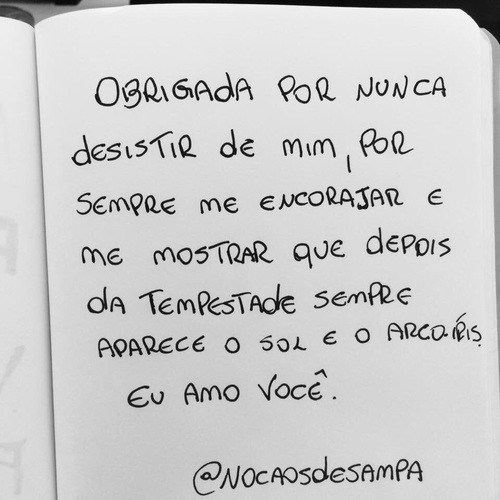 OBRIGADA POR NUNCA
DESISTIR DE MIM, POR
SEMPRE ME ENCORAJAR E
ME MOSTRAR QUE DEPOIS
DA TEMPESTADE SEMPRE
APARECE O SOL E O ARCO-ÍRIS.
EU AMO VOCÊ.
@NOCAOSDESAMPA